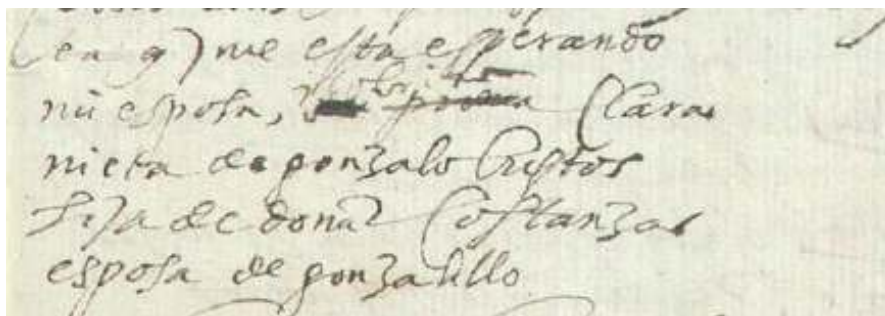 en q) me esta esperando
mi esposa, Clara
nieta de gonzalo bustos
hija de doña Costanza
esposa de gonzalillo